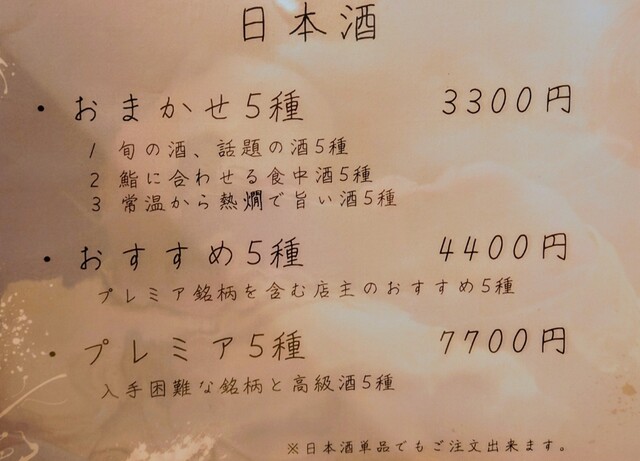 日本酒
・おまかせ5種 3300円
1 旬の酒、話題の酒5種
2 鮨に合わせる食中酒5種
3 常温から熱燗で旨い酒5種
・おすすめ5種 4400円
プレミア銘柄を含む店主のおすすめ5種
・プレミア5種 7700円
入手困難な銘柄と高級酒5種
※日本酒単品でもご注文出来ます。